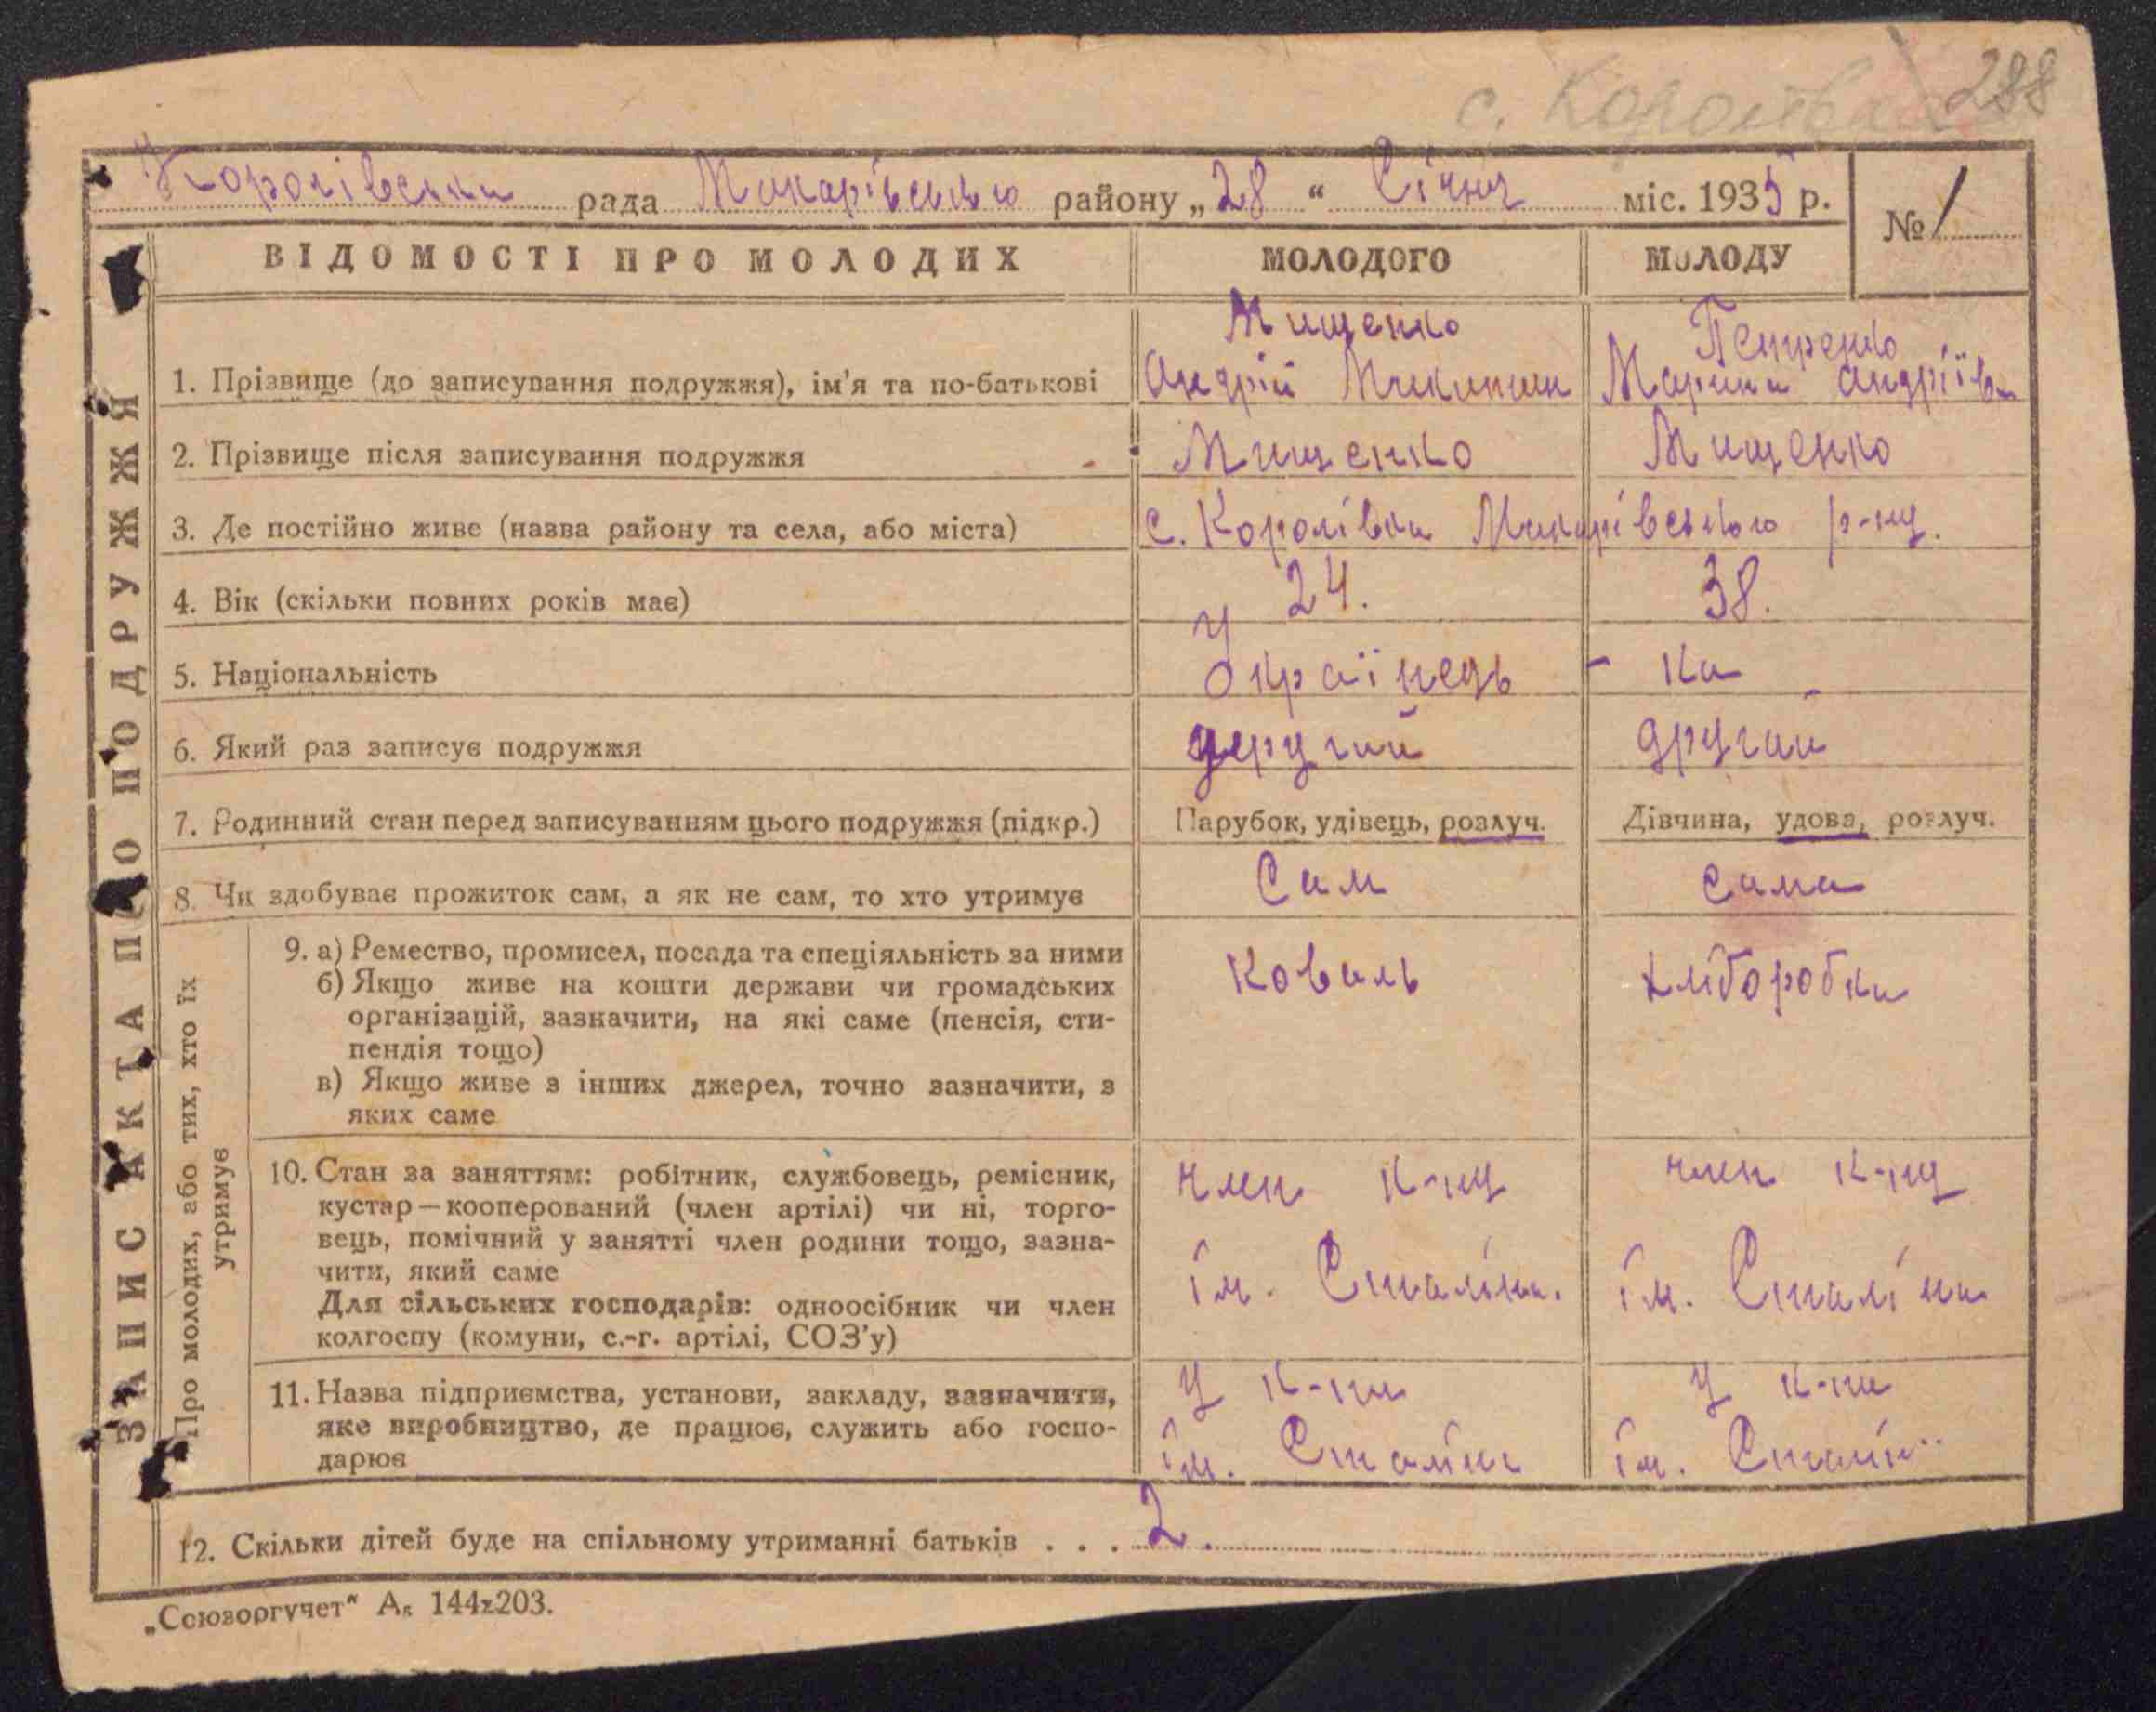 с. Королівка 288
Королівська рада Макарівського району „28“ Січня міс. 1935 р.
№ 1
ВІДОМОСТІ ПРО МОЛОДИХ МОЛОДОГО МОЛОДУ
Мищенко Петренко
1. Прізвище (до записування подружжя), ім'я та по-батькові Андрій Микитин Марина Андріївн
2. Прізвище після записування подружжя Мищенко Мищенко
3. Де постійно живе (назва району та села, або міста) с. Королівка Макарівського р-ну.
4. Вік (скільки повних років має) 24. 38.
5. Національність Українець - ка
6. Який раз записує подружжя другий другий
7. Родинний стан перед записуванням цього подружжя (підкр.) Парубок, удівець, розлуч. Дівчина, удова, розлуч.
8. Чи здобуває прожиток сам, а як не сам, то хто утримує Сам сама
9. а) Ремество, промисел, посада та спеціяльність за ними Коваль хліборобка
б) Якщо живе на кошти держави чи громадських
організацій, зазначити, на які саме (пенсія, сти-
пендія тощо)
в) Якщо живе з інших джерел, точно зазначити, з
яких саме
10. Стан за заняттям: робітник, службовець, ремісник, член к-пу член к-пу
кустар—кооперований (член артілі) чи ні, торго-
вець, помічний у занятті член родини тощо, зазна-
чити, який саме ім. Сталіна. ім. Сталіна
Для сільських господарів: одноосібник чи член
колгоспу (комуни, с.-г. артілі, СОЗ'у)
11. Назва підприємства, установи, закладу, зазначити, у к-пи у к-пи
яке виробництво, де працює, служить або госпо-
дарює ім. Сталіна ім. Сталін
12. Скільки дітей буде на спільному утриманні батьків . . . 2.
„Союзоргучет“ А₅ 144z203.
ЗАПИС АКТА ПРО ПОДРУЖЖЯ
Про молодих, або тих, хто їх
утримує